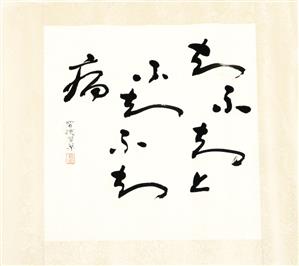 知不知上
不知不知
病